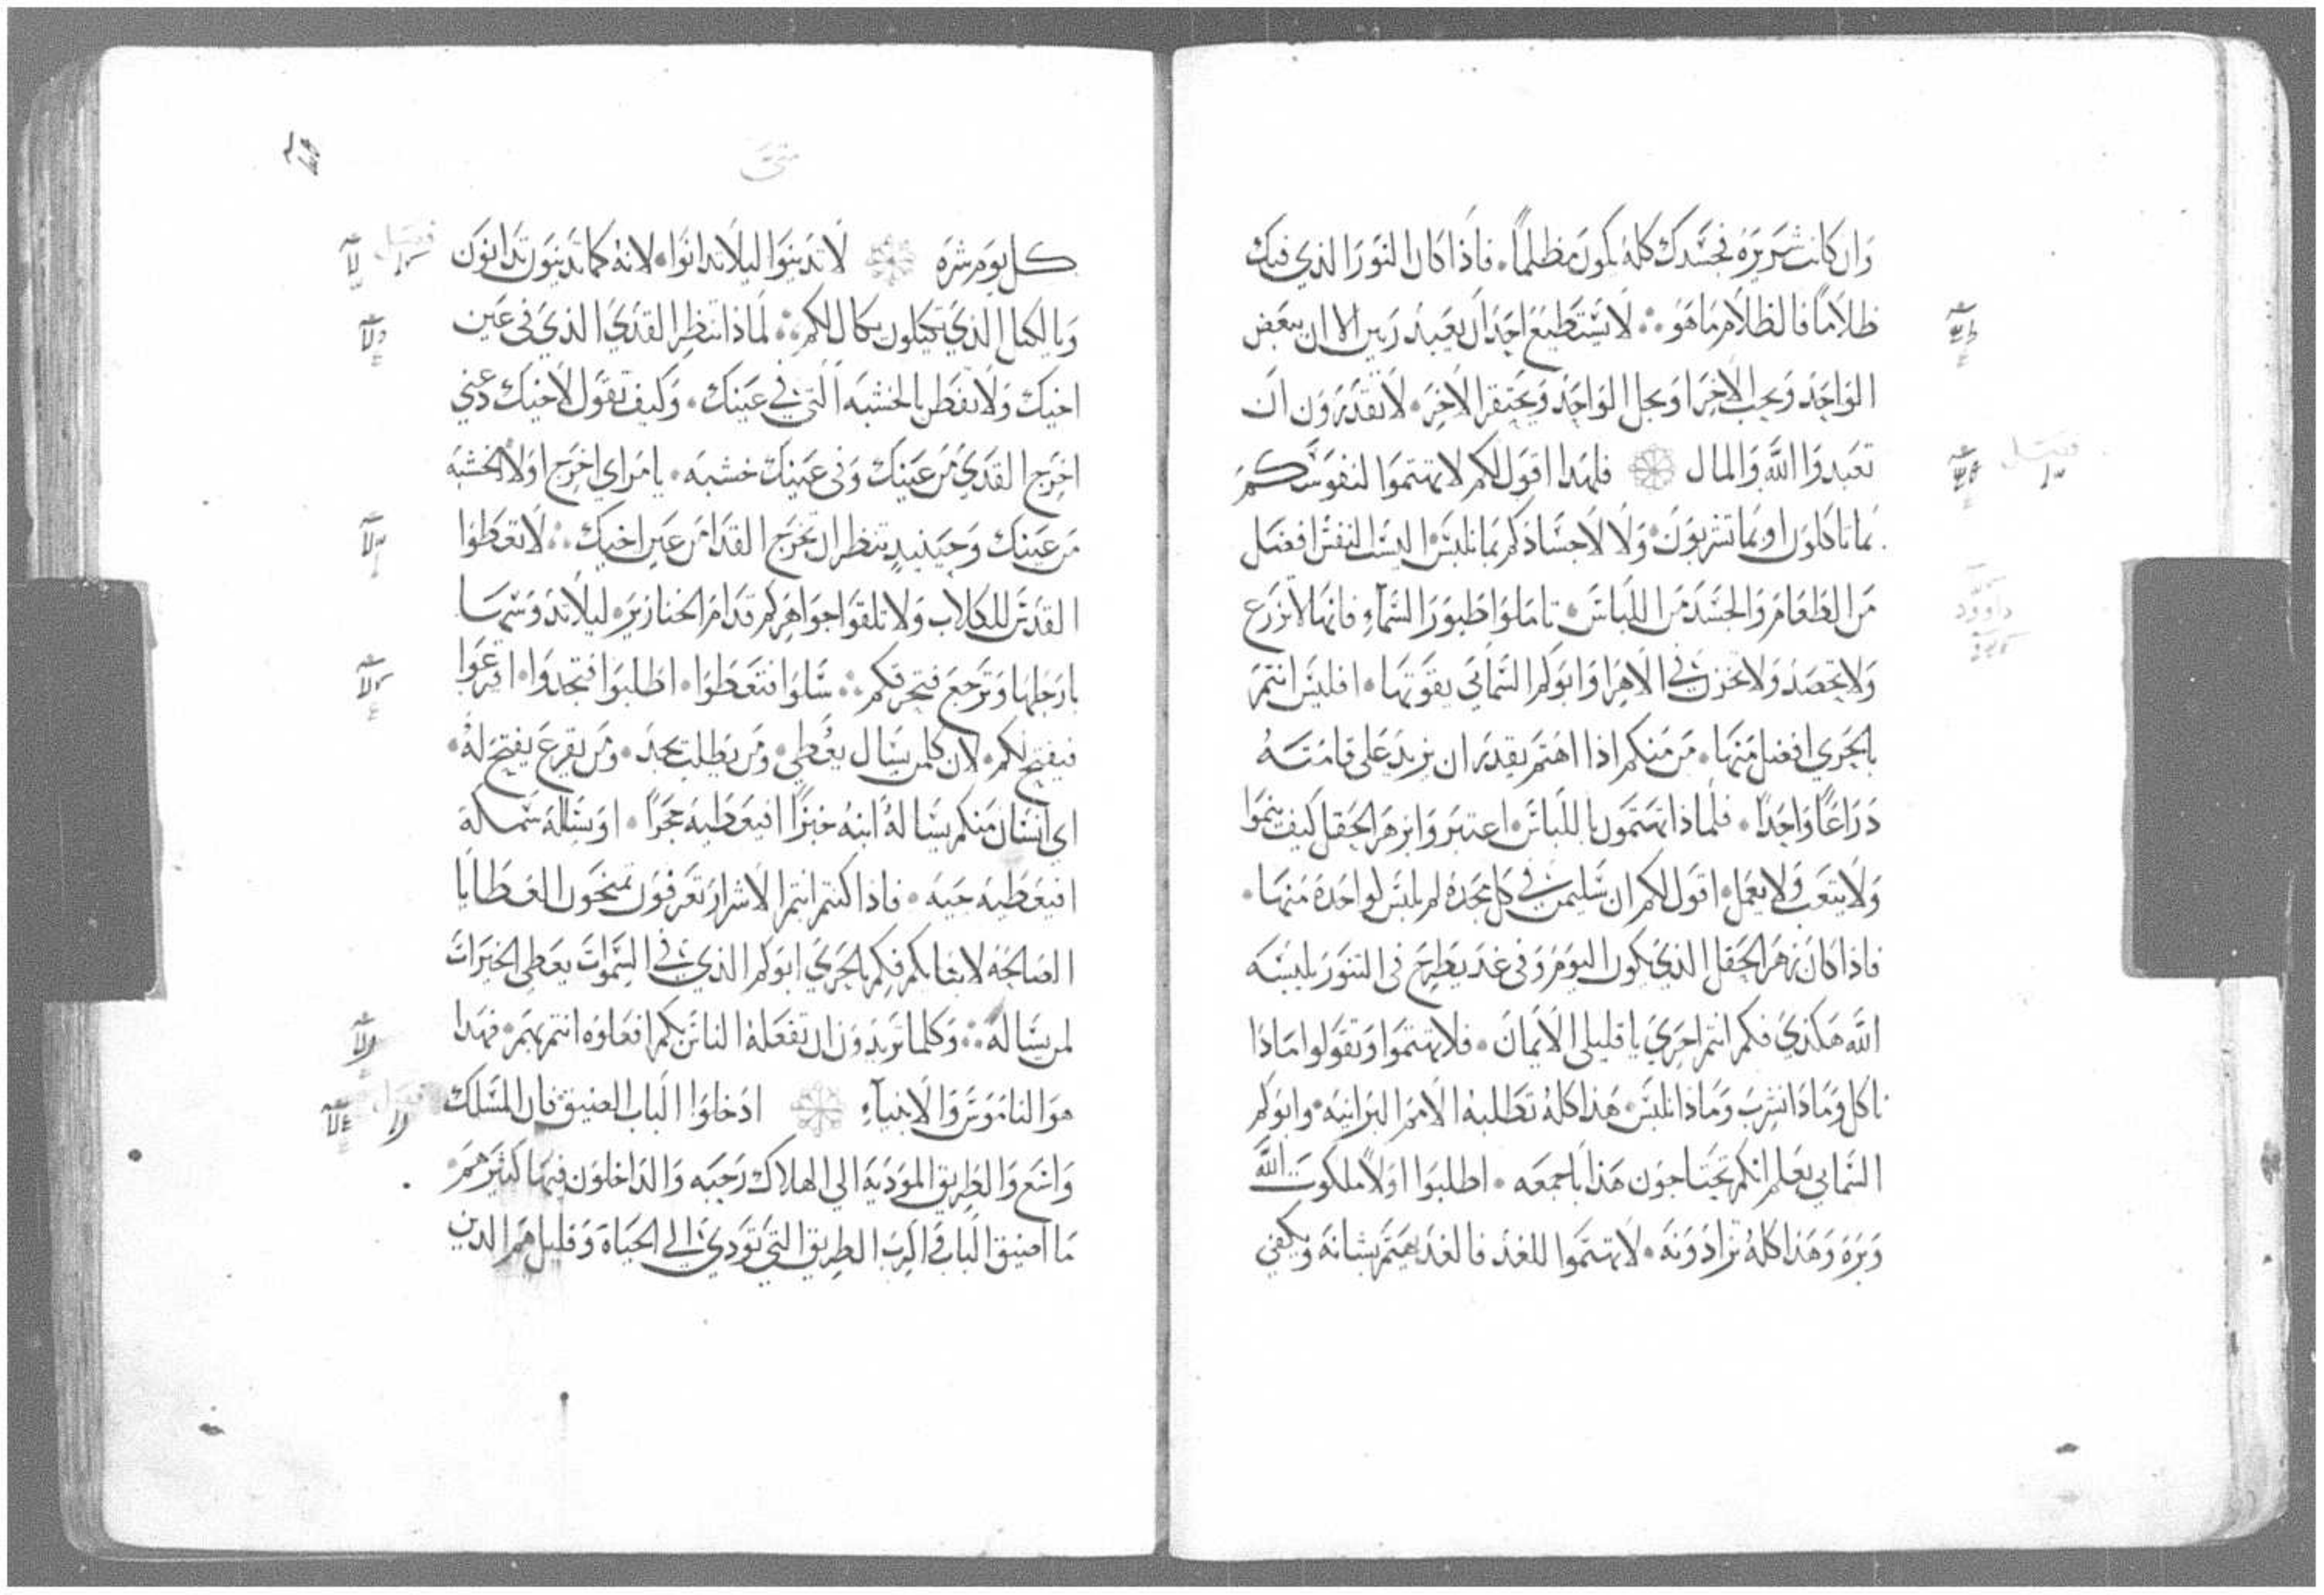 وان كانت شريره فجسدك كله يكون مظلمًا. فاذا كان النور الذي فيك
ظلامًا فالظلام ما هو ∴ لا يستطيع احد ان يعبد ربين الا ان يبغض
الواحد ويحب الاخر او يجل الواحد ويحتقر الاخر. لا تقدرون ان
تعبدوا الله والمال فلهذا اقول لكم لا تهتموا لنفوسكم
بما تاكلون او بما تشربون. ولا لاجسادكم بما تلبس اليس النفس افضل
من الطعام والجسد من اللباس. تاملوا طيور السماء فانها لا تزرع
ولا تحصد ولا تخزن في الاهرا وابوكم السمائي يقوتها. افليس انتم
بالحري افضل منها. من منكم اذا اهتم يقدر ان يزيد على قامته
دراعًا واحدًا. فلماذا تهتمون باللباس. اعتبروا بزهر الحقل كيف ينموا
ولا يتعب ولا يعمل. اقول لكم ان سليمن في كل مجده لم يلبس كواحدة منها.
فاذا كان زهر الحقل الذي يكون اليوم وفي غد يطرح في التنور يلبسه
الله هكذي فكم انتم احري يا قليلي الايمان. فلا تهتموا وتقولوا ماذا
ناكل وماذا نشرب وماذا نلبس. هذا كله تطلبه الامم البرانيه. وابوكم
السمايي يعلم انكم تحتاجون هذا باجمعه. اطلبوا اولًا ملكوت الله
وبره وهذا كله تزادونه. لا تهتموا للغد فالغد يهتم بشانه ويكفي
فصل
داوود
متى
كل يوم شره لا تدينوا ليلا تدانوا. لانه كما تدينون تدانون
وبالكيل الذي تكيلون يكال لكم ∴ لماذا تنظر القدي الذي في عين
اخيك ولا تفطن بالخشبه التي في عينك. وكيف تقول لاخيك دعني
اخرج القدي من عينك وفي عينك خشبه. يا مراي اخرج اولا الخشبه
من عينك وحينيذ تنظر ان تخرج القدا من عين اخيك ∴ لا تعطوا
القدس للكلاب ولا تلقوا جواهركم قدام الخنازير. ليلا تدوسها
بارجلها وترجع فتحرقكم ∴ سلوا فتعطوا. اطلبوا فتجدوا. اقرعوا
فيفتح لكم. لان كلمن يسال يعطي. ومن يطلب يجد. ومن يقرع يفتح له.
اي انسان منكم يساله ابنه خبزًا افيعطيه حجرًا. او يسله سمكه
افيعطيه حيه. فاذا كنتم انتم الاشرار تعرفون تمنحون العطايا
الصالحة لابنايكم فكم بالحري ابوكم الذي في السموات يعطي الخيرات
لمن يساله ∴ وكلما تريدون ان تفعله الناس بكم افعلوه انتم بهم. فهذا
هو الناموس والانبيآء ادخلوا الباب الضيق. فان المسلك
واسع والطريق المودية الي الهلاك رحبه والداخلون فيها كثير هم.
ما اضيق الباب واكرب الطريق التي تودي الي الحياة وقليل هم الدين
فصل
فصل